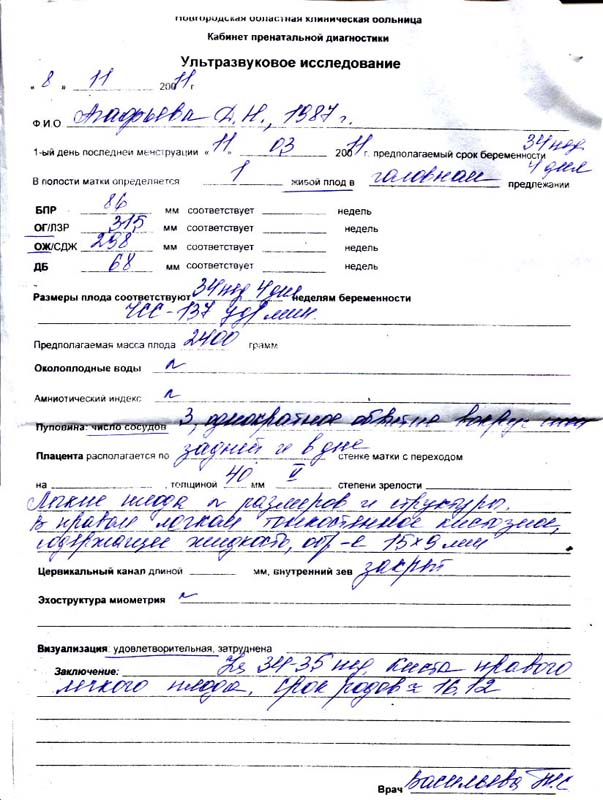 Новгородская областная клиническая больница
Кабинет пренатальной диагностики
Ультразвуковое исследование
« 8 » 11 200 11 г
Ф.И.О Агафьева Д.Н., 1987 г.
1-ый день последней менструации « 11 » 03 200 11 г. предполагаемый срок беременности 34 нед 4 дня
В полости матки определяется 1 живой плод в головном предлежании
БПР 86 мм соответствует недель
ОГ/ЛЗР 315 мм соответствует недель
ОЖ/СДЖ 298 мм соответствует недель
ДБ 68 мм соответствует недель
Размеры плода соответствуют 34 нед 4 дня неделям беременности
ЧСС - 137 уд/мин.
Предполагаемая масса плода 2400 грамм
Околоплодные воды N
Амниотический индекс N
Пуповина: число сосудов 3, однократное обвитие вокруг шеи
Плацента располагается по задней и в дне стенке матки с переходом
на , толщиной 40 мм II степени зрелости
Легкие плода N размеров и структуры.
В правом легком тонкостенное кистозное,
содержащее жидкость, обр-е 15х9 мм
Цервикальный канал длиной мм, внутренний зев закрыт
Эхоструктура миометрия N
Визуализация: удовлетворительная, затруднена
Заключение: 34-35 нед. Киста правого
легкого плода. Срок родов ≈ 16.12
Врач Васильева